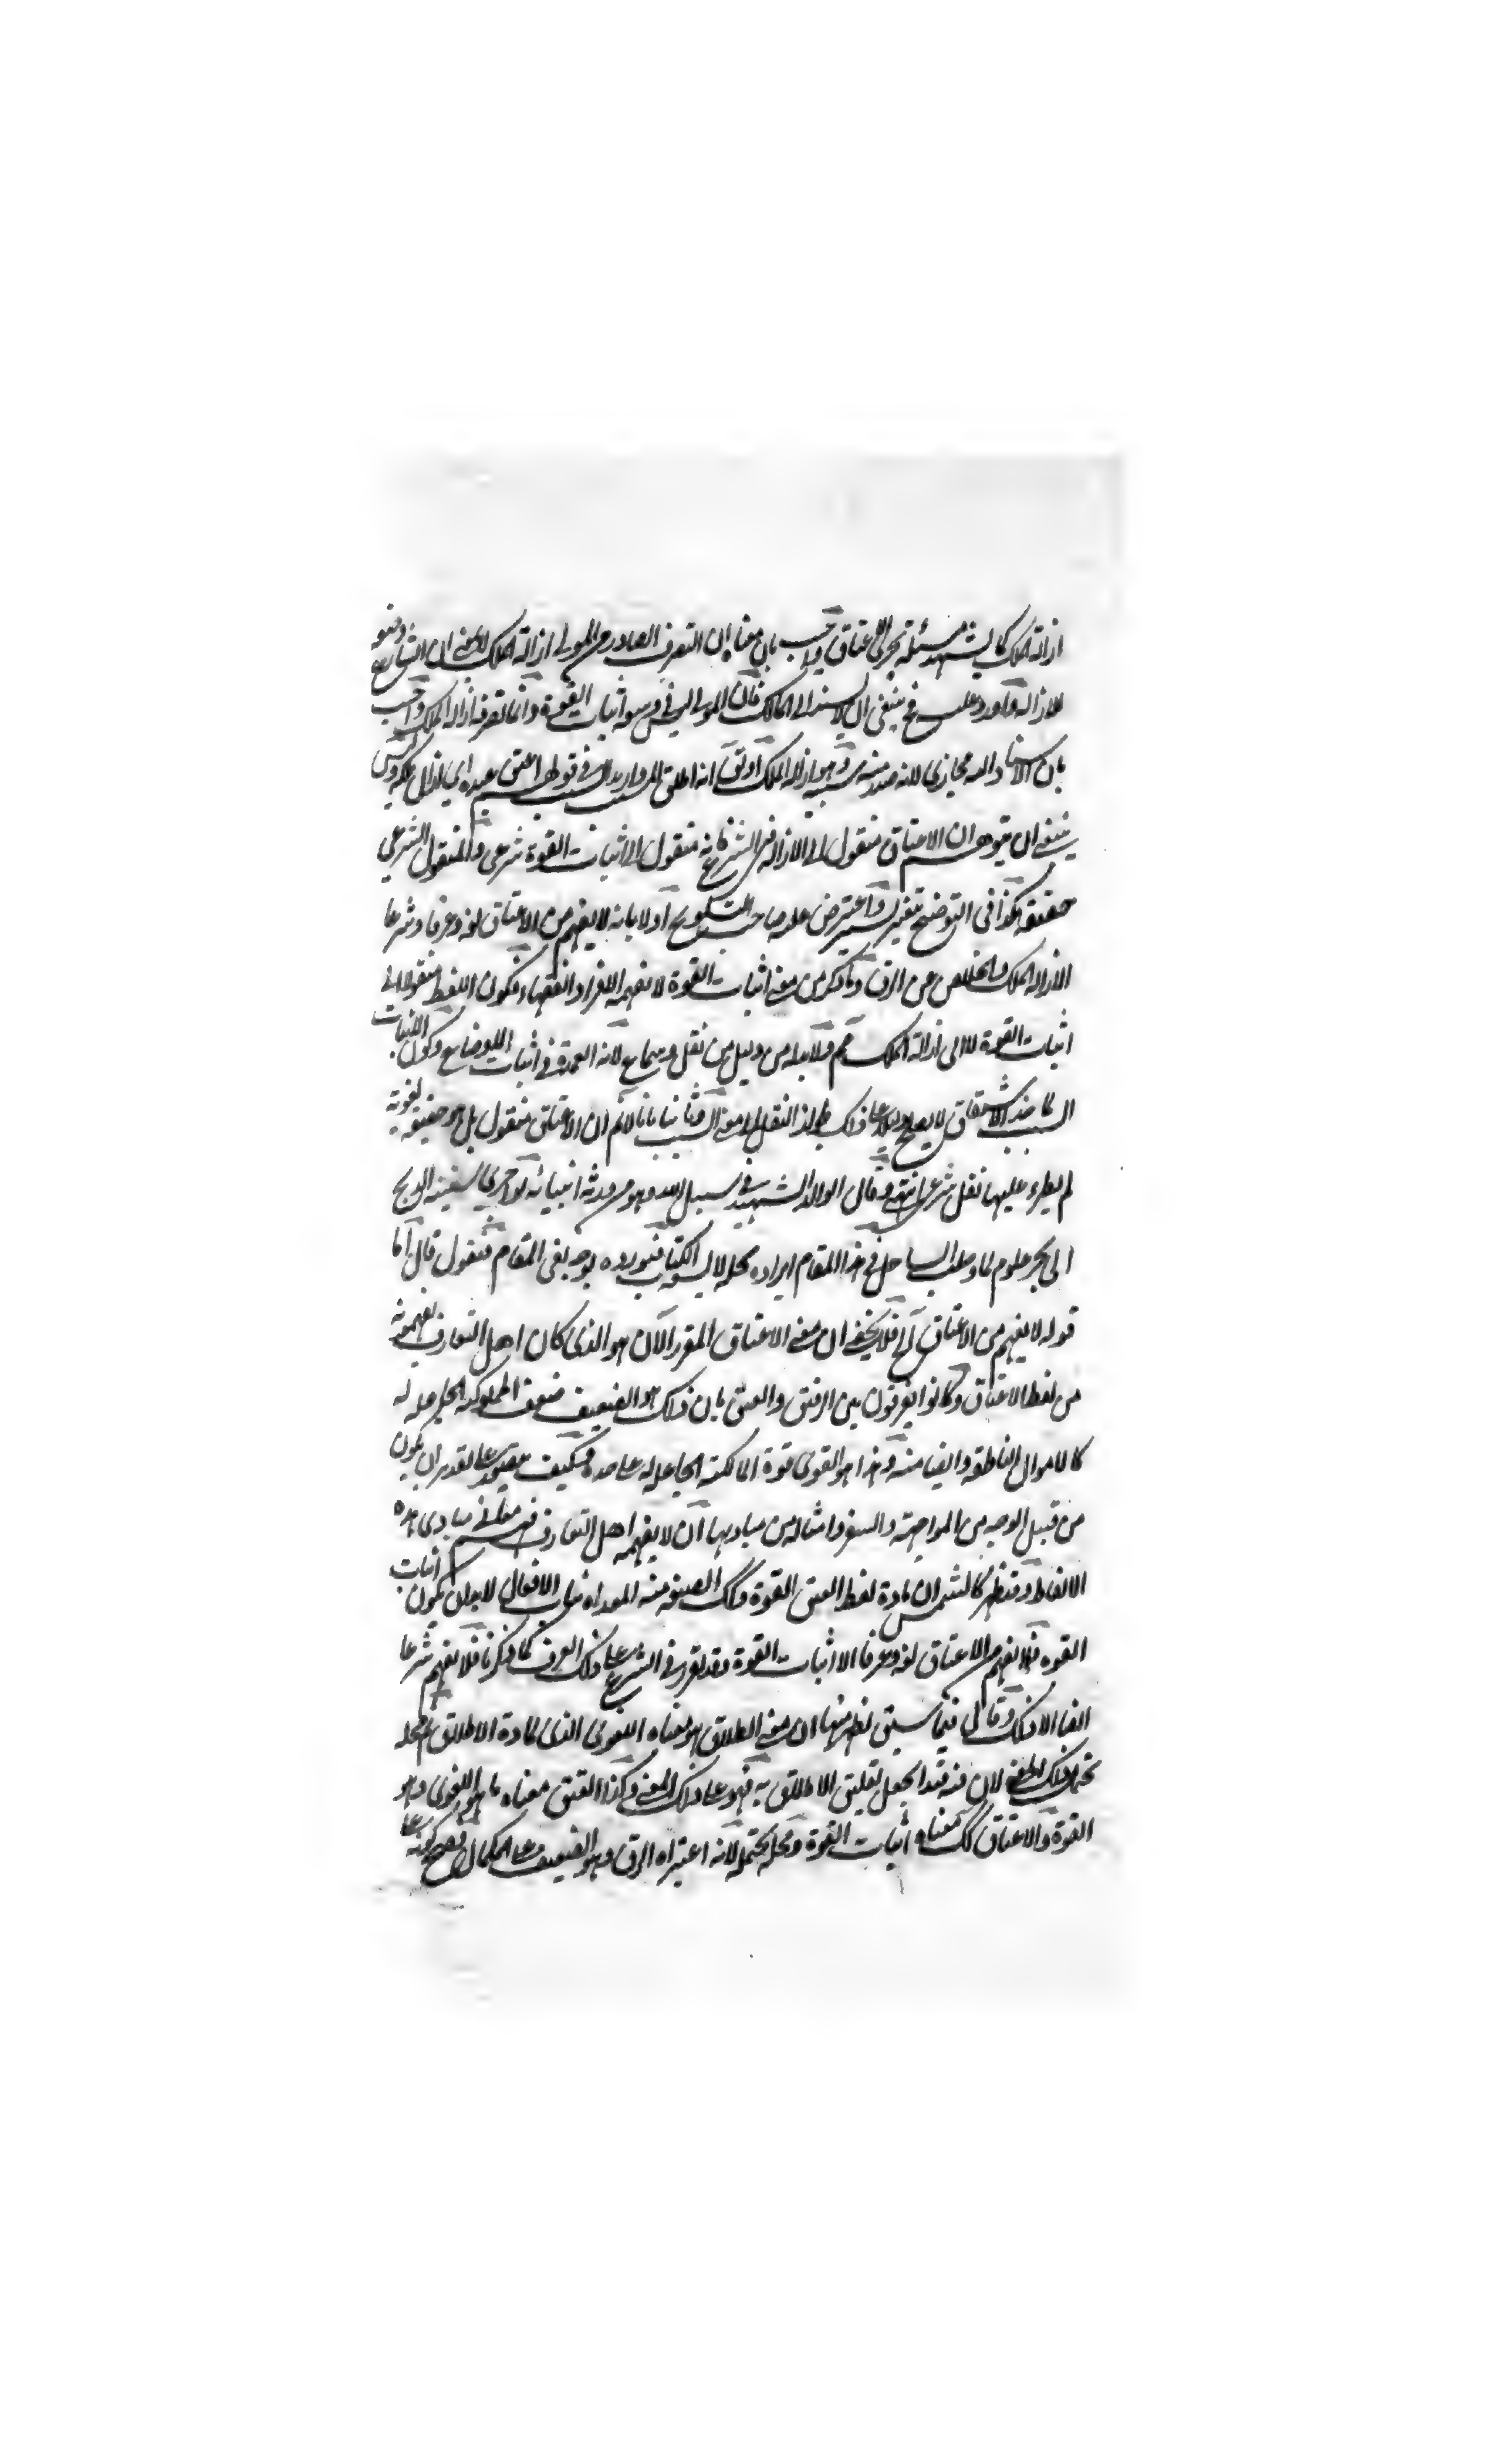 ازالة الملك كما يشهد مسئلة تجزي الاعتاق واجيب بان معناه ان التصرف الصادر من المولى ازالة الملك لا بمعنى ان الشارع وضعه
للازالة واورد عليه ينبغي ان لا يسند الى المالك فان المولى ليس في وسعه اثبات القوة وانما تصرفه ازالة الملك واجيب
بان الاسناد اليه مجازي لانه صدر منه سببه وهو ازالة الملك او نقول انه اطلق السبب واريد المسبب في قولهم اعتق عبده اي ازال ملكه وليس
ينبغي ان يتوهم ان الاعتاق منقول الى الازالة في الشرع فانه منقول الى اثبات القوة شرعي والمنقول الشرعي
حقيقة كذا في التوضيح بتغيير يسير واعترض عليه صاحب التلويح اولا بانه لا يفهم من الاعتاق لغة وعرفا وشرعا
الا ازالة الملك والخلاص عن الرق وما ذكر من معنى اثبات القوة لا يفهمه الا افراد الفقهاء فكون اللفظ منقولا الى
اثبات القوة لا الى ازالة الملك مم ولا بد له من دليل من نقل وسماع لانه العمدة في اثبات الاوضاع وكون اثبات
السبب مأخذ الاشتقاق لا يصلح دليلا على ذلك لجواز النقل الى معنى السبب وثانيا بانا لانم ان الاعتاق منقول بل هو حقيقة لغوية
لم يطرء عليها نقل شرعي انتهى وقال الوالد الشهيد في سبيل الله وهو من ورثة انبيائه لو اجرى سفينة الريح
الى بحر علوم لما وصلت الساحل في هذا المقام ايراده بكله لا يسعه الكتاب فنورده بوجه يفي المقام فنقول قال اما
قوله لا يفهم من الاعتاق الخ فلا يخفى ان معنى الاعتاق المقرر الآن هو الذي كان اهل التعارف يفهمونه
من لفظ الاعتاق وكانوا يفرقون بين الرقيق والعتيق بان ذلك هو الضعيف ضعف المملوكية الجاعلة له
كالاموال الناطقة وايضا منه وهذا هو القوي قوة المالكية الجاعلة له على حدة فكيف يعتمد على تقدير ان يكون
من قبيل الوجه من المواجهة والسفر وامثاله من مباديها ان لا يفهمه اهل التعارف فهم معاني مبادي هذه
الالفاظ وقد ظهر كالشمس ان مادة لفظ العتق القوة وتلك الصيغة منه المعداة بباب الافعال لا بد ان يكون اثبات
القوة فلا يفهم من الاعتاق لغة وعرفا الا اثبات القوة وقد تقرر في الشرع على ذلك العرف كما ذكرنا فلا يفهم شرعا
ايضا الا ذلك وقال فيما سبق نظر منها ان معنى الطلاق هو معناه اللغوي الذي لمادة الاطلاق ومحله
يحتمل ذلك المعنى لان فيه قيدا يجعل تعليق الاطلاق به فهو على ذلك المعنى وكذا العتق معناه ما هو اللغوي وهو
القوة والاعتاق كك معناه اثبات القوة ومحله يحتمله لانه اعتراه الرق وهو الضعيف وعلى الكمال وصح كونه على